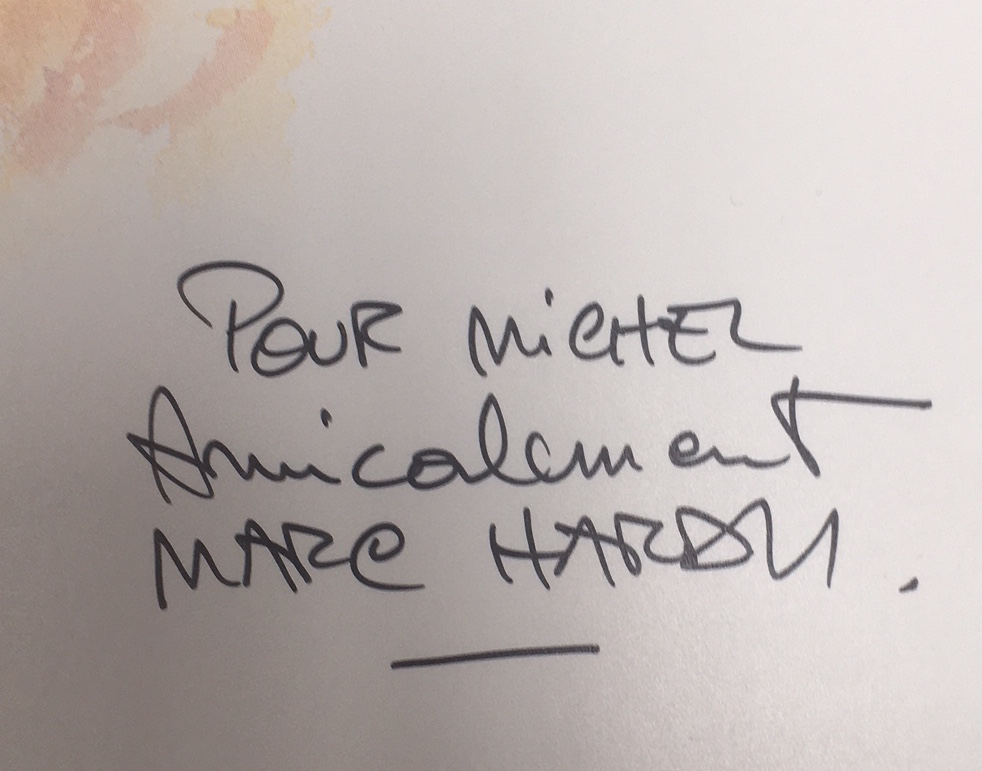 POUR MiCHEL
Amicalement
MARC HARDY.